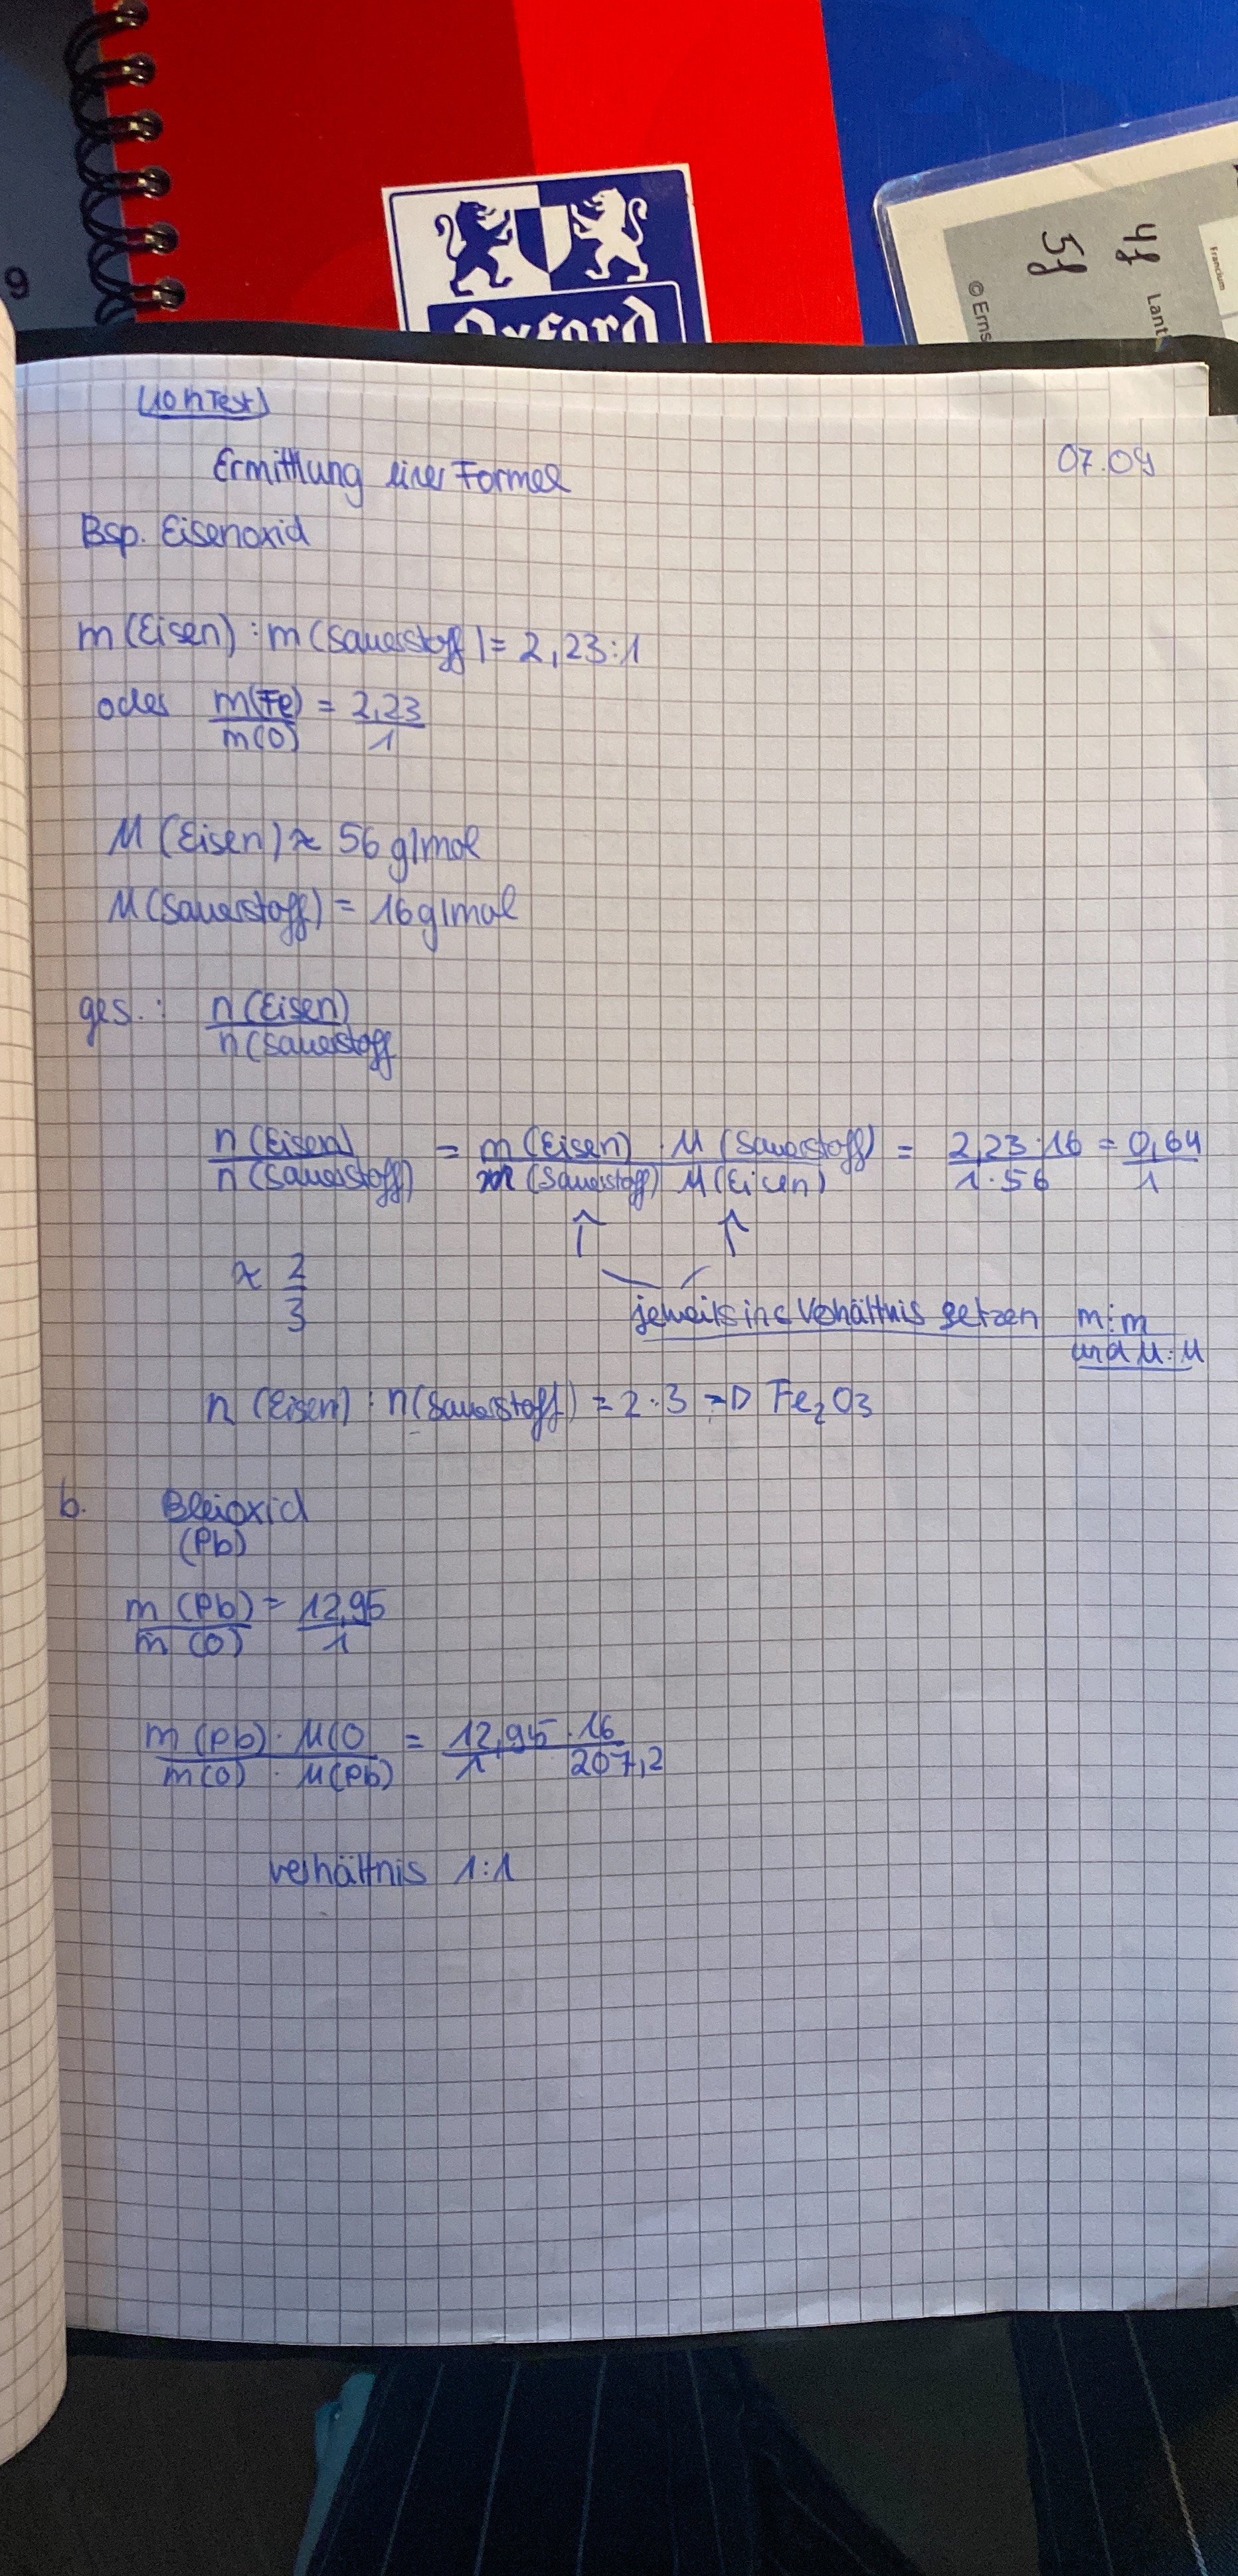 9
Oxford
4f
5f
© Erns
Lant
Francium
Ermittlung einer Formel
07.09
Bsp. Eisenoxid
m (Eisen) : m (Sauerstoff) = 2,23:1
oder m(Fe) / m(O) = 2,23 / 1
M (Eisen) ≈ 56 g/mol
M (Sauerstoff) = 16 g/mol
ges.: n (Eisen) / n (Sauerstoff
n (Eisen) / n (Sauerstoff) = m (Eisen) · M (Sauerstoff) / m (Sauerstoff) M (Eisen) = 2,23·16 / 1·56 = 0,64 / 1
≈ 2 / 3
jeweils ins Verhältnis setzen m:m
und M:M
n (Eisen) : n (Sauerstoff) = 2:3 → Fe₂O₃
b. Bleioxid
(Pb)
m (Pb) / m (O) = 12,95 / 1
m (Pb) · M(O / m(O) · M(Pb) = 12,95 · 16 / 1 207,2
verhältnis 1:1